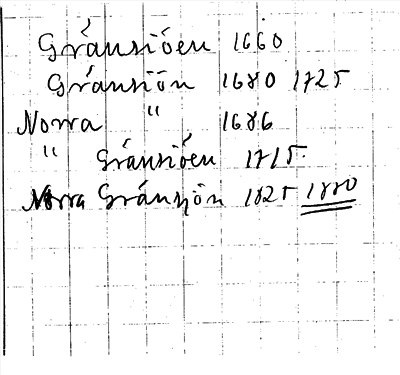 Gränsiöen 1660
Gränsiön 1680 1725
Norra " 1686
" Gränsiöen 1715.
Norra Gränsjön 1825 1880